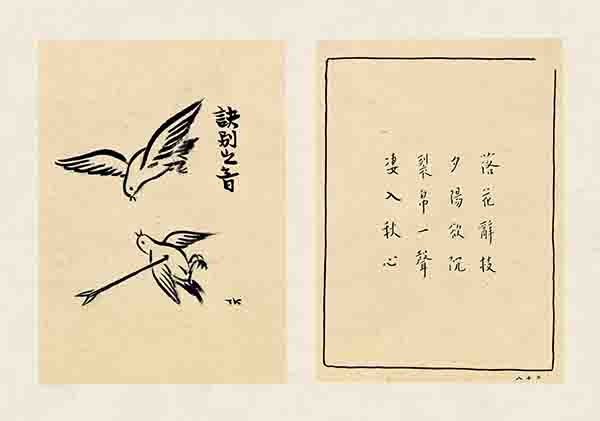 訣別之音
TK
落花辭枝
夕陽欲沉
裂帛一聲
凄入秋心